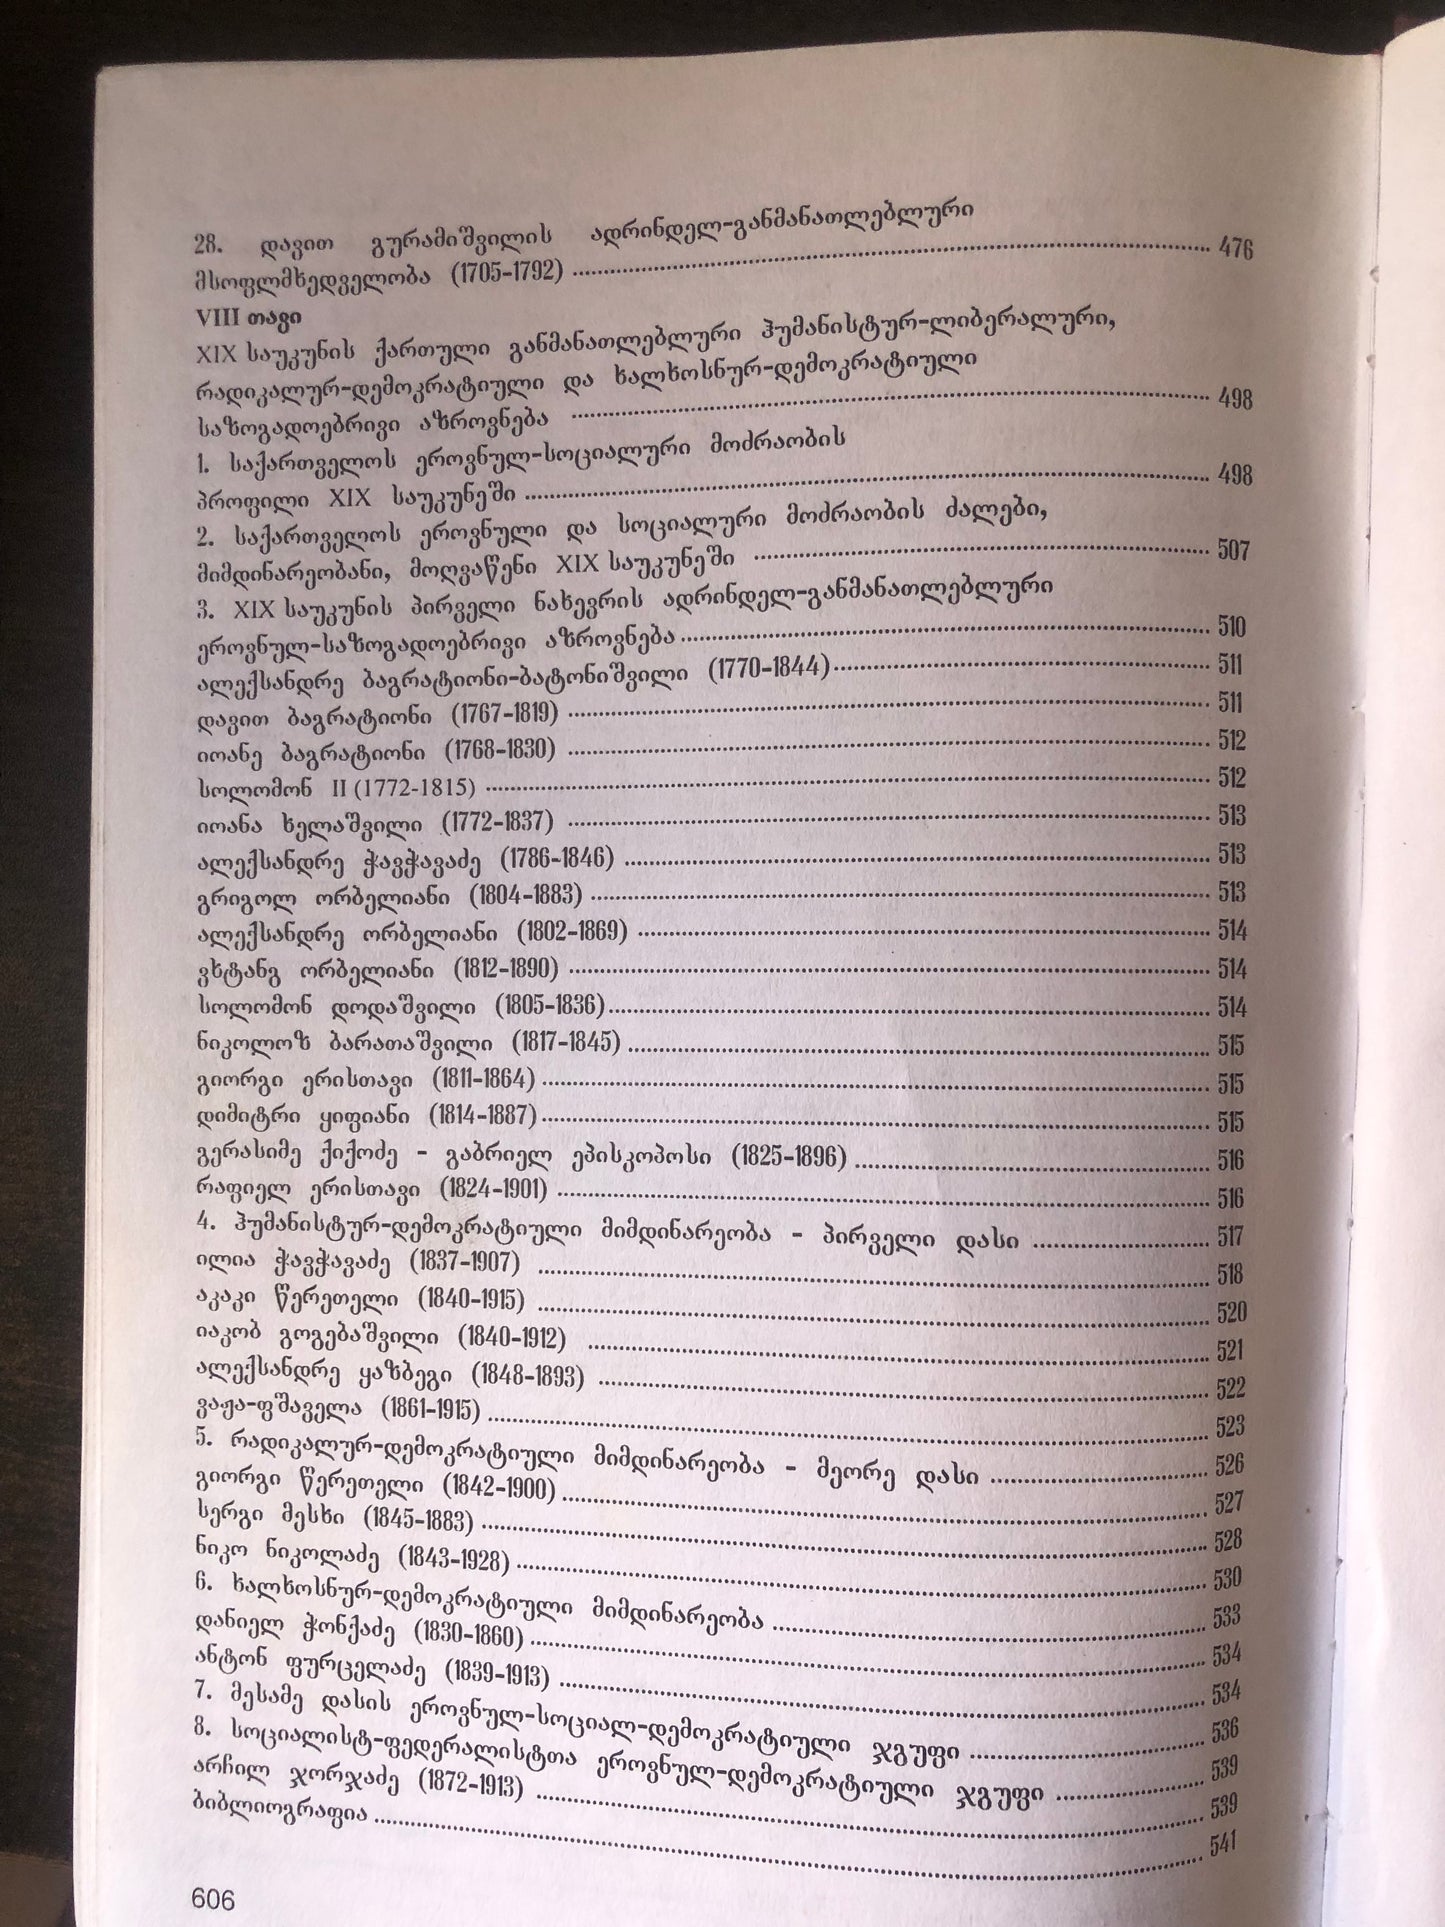 28. დავით გურამიშვილის ადრინდელ-განმანათლებლური
მსოფლმხედველობა (1705-1792) ........ 476
VIII თავი
XIX საუკუნის ქართული განმანათლებლური ჰუმანისტურ-ლიბერალური,
რადიკალურ-დემოკრატიული და ხალხოსნურ-დემოკრატიული
საზოგადოებრივი აზროვნება ........ 498
1. საქართველოს ეროვნულ-სოციალური მოძრაობის
პროფილი XIX საუკუნეში ........ 498
2. საქართველოს ეროვნული და სოციალური მოძრაობის ძალები,
მიმდინარეობანი, მოღვაწენი XIX საუკუნეში ........ 507
3. XIX საუკუნის პირველი ნახევრის ადრინდელ-განმანათლებლური
ეროვნულ-საზოგადოებრივი აზროვნება ........ 510
ალექსანდრე ბაგრატიონი-ბატონიშვილი (1770-1844) ........ 511
დავით ბაგრატიონი (1767-1819) ........ 511
იოანე ბაგრატიონი (1768-1830) ........ 512
სოლომონ II (1772-1815) ........ 512
იოანა ხელაშვილი (1772-1837) ........ 513
ალექსანდრე ჭავჭავაძე (1786-1846) ........ 513
გრიგოლ ორბელიანი (1804-1883) ........ 513
ალექსანდრე ორბელიანი (1802-1869) ........ 514
ვხტანგ ორბელიანი (1812-1890) ........ 514
სოლომონ დოდაშვილი (1805-1836) ........ 514
ნიკოლოზ ბარათაშვილი (1817-1845) ........ 515
გიორგი ერისთავი (1811-1864) ........ 515
დიმიტრი ყიფიანი (1814-1887) ........ 515
გერასიმე ქიქოძე - გაბრიელ ეპისკოპოსი (1825-1896) ........ 516
რაფიელ ერისთავი (1824-1901) ........ 516
4. ჰუმანისტურ-დემოკრატიული მიმდინარეობა - პირველი დასი ........ 517
ილია ჭავჭავაძე (1837-1907) ........ 518
აკაკი წერეთელი (1840-1915) ........ 520
იაკობ გოგებაშვილი (1840-1912) ........ 521
ალექსანდრე ყაზბეგი (1848-1893) ........ 522
ვაჟა-ფშაველა (1861-1915) ........ 523
5. რადიკალურ-დემოკრატიული მიმდინარეობა - მეორე დასი ........ 526
გიორგი წერეთელი (1842-1900) ........ 527
სერგი მესხი (1845-1883) ........ 528
ნიკო ნიკოლაძე (1843-1928) ........ 530
6. ხალხოსნურ-დემოკრატიული მიმდინარეობა ........ 533
დანიელ ჭონქაძე (1830-1860) ........ 534
ანტონ ფურცელაძე (1839-1913) ........ 534
7. მესამე დასის ეროვნულ-სოციალ-დემოკრატიული ჯგუფი ........ 536
8. სოციალისტ-ფედერალისტთა ეროვნულ-დემოკრატიული ჯგუფი ........ 539
არჩილ ჯორჯაძე (1872-1913) ........ 539
ბიბლიოგრაფია ........ 541
606